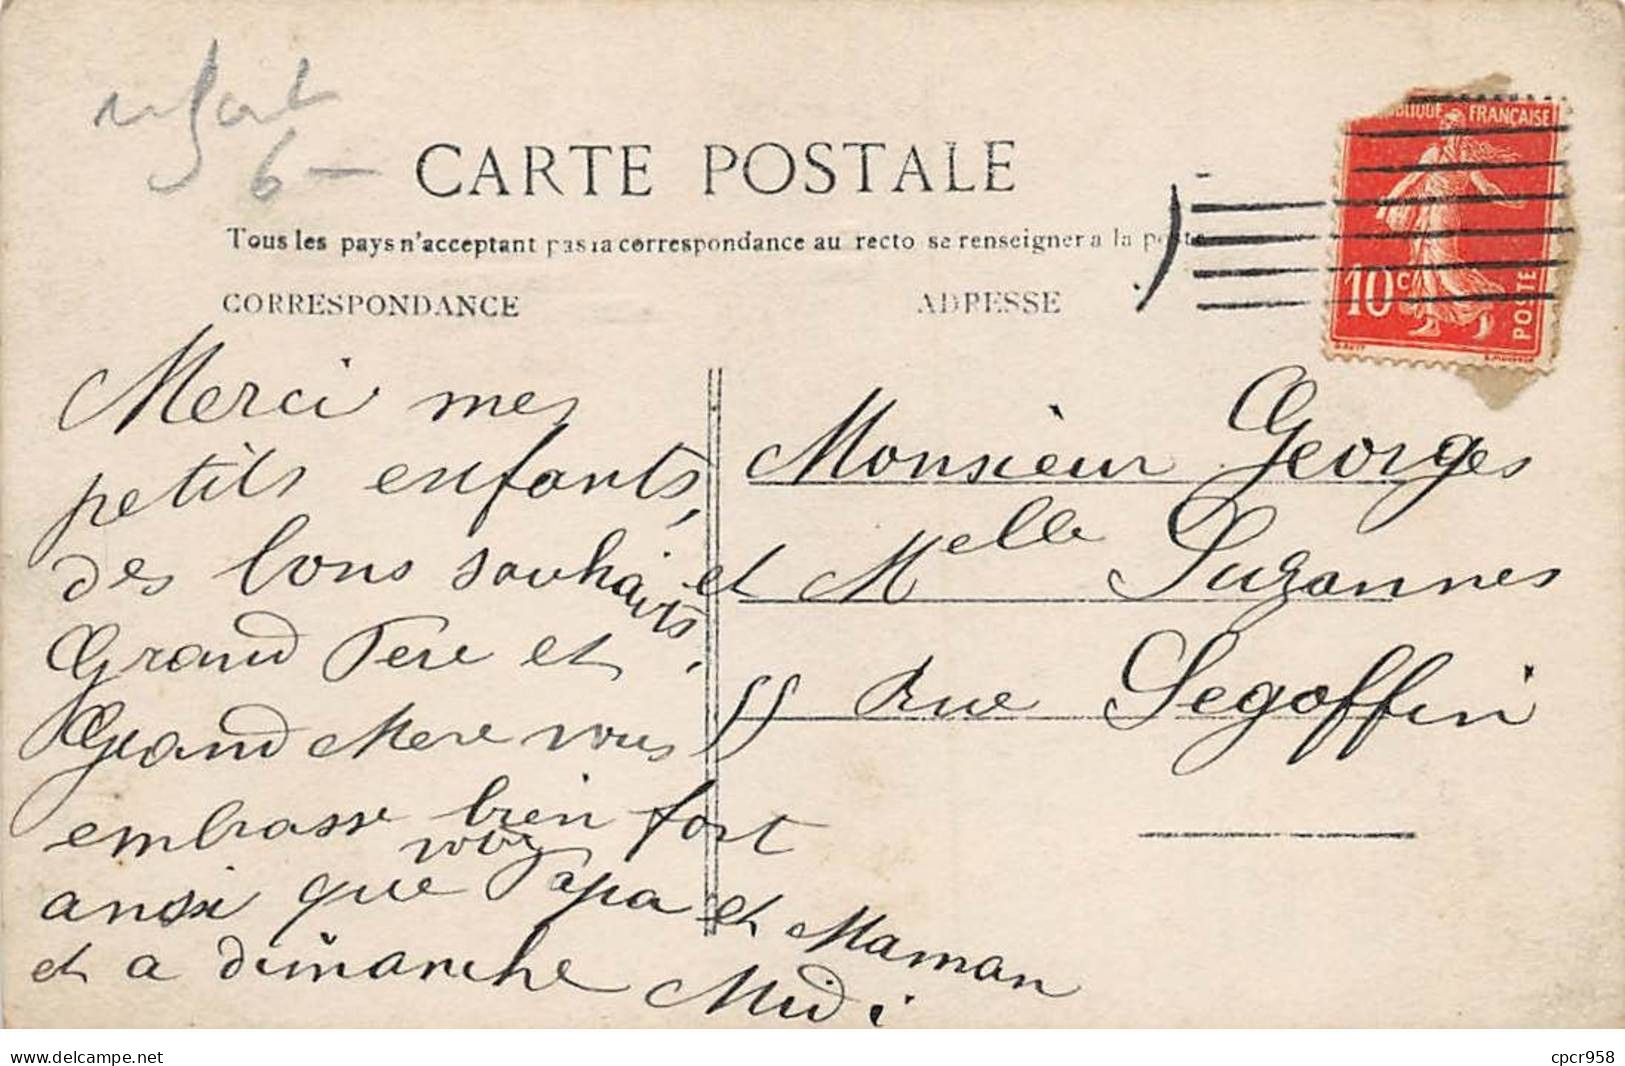 enfant
6 —
CARTE POSTALE
Tous les pays n'acceptant pas la correspondance au recto se renseigner a la poste
CORRESPONDANCE
ADRESSE
RÉPUBLIQUE FRANÇAISE
10c
POSTE
Merci mes
petits enfants,
des bons souhaits.
Grand Pere et
Grand Mere vous
embrasse bien fort
ainsi que vox Papa et Maman
et a dimanche Midi
Monsieur Georges
et Melle Suzannes
55 Rue Segoffin
delcampe.net
cpcr958